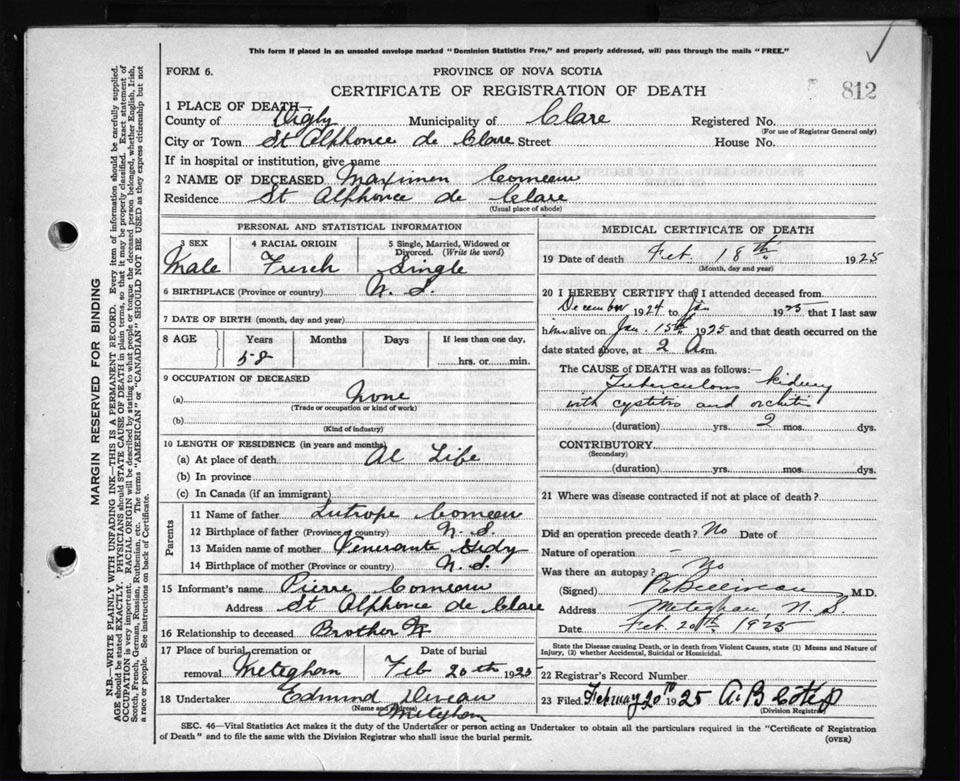 This form if placed in an unsealed envelope marked "Dominion Statistics Free," and properly addressed, will pass through the mails "FREE."
FORM 6. PROVINCE OF NOVA SCOTIA
CERTIFICATE OF REGISTRATION OF DEATH 812
1 PLACE OF DEATH—
County of Digby Municipality of Clare Registered No.
(For use of Registrar General only)
City or Town St Alphonce de Clare Street House No.
If in hospital or institution, give name
2 NAME OF DECEASED Maximen Comeau
Residence St Alphonce de Clare
(Usual place of abode)
PERSONAL AND STATISTICAL INFORMATION
3 SEX 4 RACIAL ORIGIN 5 Single, Married, Widowed or Divorced. (Write the word)
Male French Single
6 BIRTHPLACE (Province or country) N. S.
7 DATE OF BIRTH (month, day and year)
8 AGE Years Months Days If less than one day,
58 hrs. or min.
9 OCCUPATION OF DECEASED
(a) None
(Trade or occupation or kind of work)
(b)
(Kind of industry)
10 LENGTH OF RESIDENCE (in years and months)
(a) At place of death Al Life
(b) In province
(c) In Canada (if an immigrant)
Parents
11 Name of father Lutrope Comeau
12 Birthplace of father (Province or country) N. S.
13 Maiden name of mother Venerante
14 Birthplace of mother (Province or country) N. S.
15 Informant's name Pierre Comeau
Address St Alphonce de Clare
16 Relationship to deceased Brother
17 Place of burial, cremation or removal Date of burial
Meteghan Feb 20th 1925
18 Undertaker Edmund Deveau
Meteghan
MEDICAL CERTIFICATE OF DEATH
19 Date of death Feb. 18th 1925
(Month, day and year)
20 I HEREBY CERTIFY that I attended deceased from
December 1924 to Jan 1925 that I last saw
him alive on Jan. 15th 1925 and that death occurred on the
date stated above, at 2 A.m.
The CAUSE of DEATH was as follows:—
Tuberculous kidney
with cystitis and orchitis
(duration) yrs. 2 mos. dys.
CONTRIBUTORY.
(Secondary)
(duration) yrs. mos. dys.
21 Where was disease contracted if not at place of death?
Did an operation precede death? No Date of
Nature of operation —
Was there an autopsy? No
(Signed) M.D.
Address Meteghan, N. S
Date Feb. 20th. 1925
State the Disease causing Death, or in death from Violent Causes, state (1) Means and Nature of
Injury, (2) whether Accidental, Suicidal or Homicidal.
22 Registrar's Record Number
23 Filed February 20th 1925 A. B
(Division Registrar)
SEC. 46—Vital Statistics Act makes it the duty of the Undertaker or person acting as Undertaker to obtain all the particulars required in the "Certificate of Registration
of Death" and to file the same with the Division Registrar who shall issue the burial permit.
(OVER)
MARGIN RESERVED FOR BINDING
N.B.—WRITE PLAINLY WITH UNFADING INK—THIS IS A PERMANENT RECORD. Every item of information should be carefully supplied.
AGE should be stated EXACTLY. PHYSICIANS should STATE CAUSE OF DEATH in plain terms, so that it may be properly classified. Exact statement of
OCCUPATION is very important. RACIAL ORIGIN will be described by stating to what people or tongue the deceased person belonged, whether English, Irish,
Scotch, French, German, Russian, Ruthenian, etc. The terms "AMERICAN" or "CANADIAN" SHOULD NOT BE USED as they express citizenship but not
a race or people. See instructions on back of Certificate.